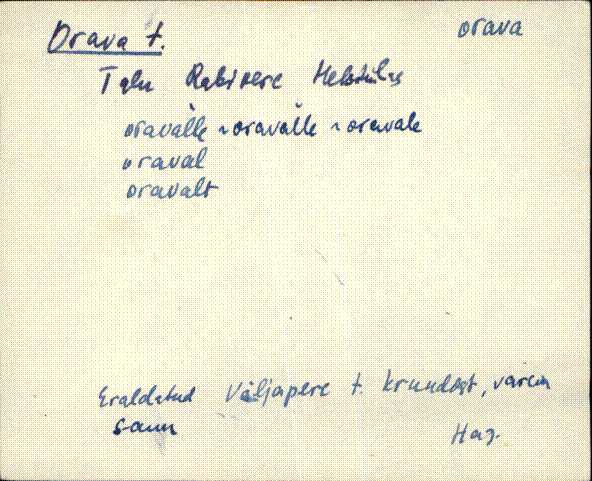 Orava t.
orava
Talu Rabivere Helstülas
oravalle ~ oravàlle ~ oravale
oraval
oravalt
Eraldatud Väljapere t. krundist, varem
saun
Hag.